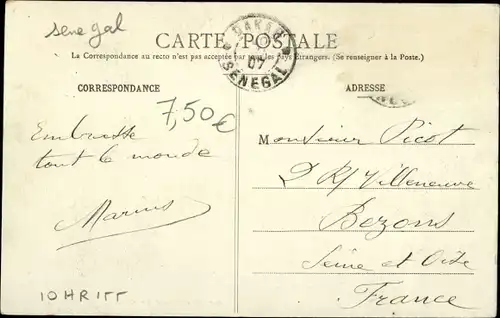 senegal
CARTE POSTALE
La Correspondance au recto n'est pas acceptée par tous les pays Étrangers. (Se renseigner à la Poste.)
DAKAR
07
SENEGAL
CORRESPONDANCE
ADRESSE
7,50€
Embrasse
tout le monde
Marius
Monsieur Picot
Villeneuve
Bezons
Seine et Oise
France
10HR155